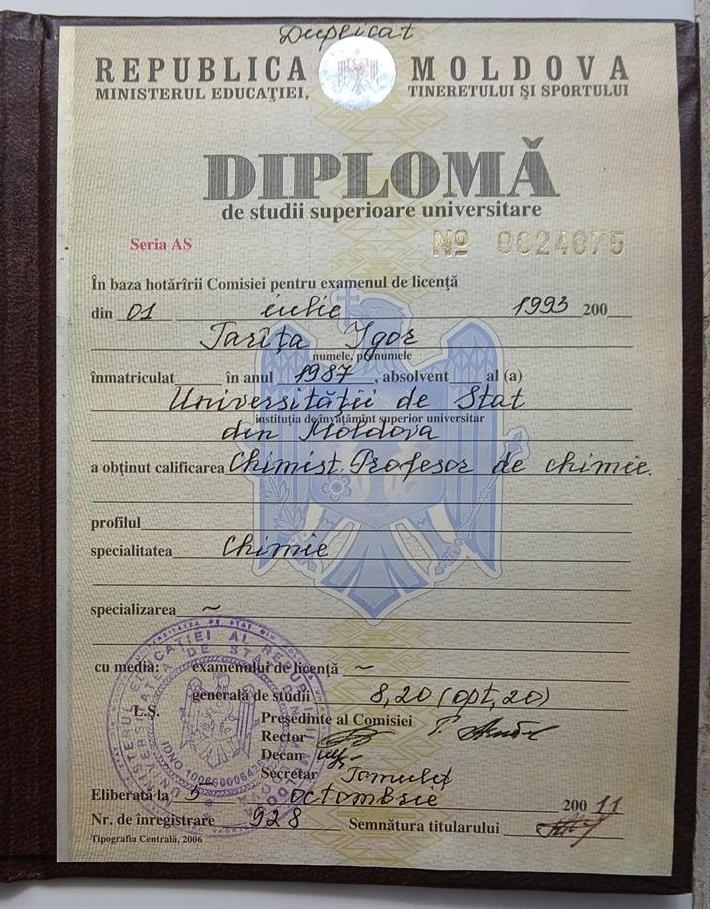 Duplicat
REPUBLICA MOLDOVA
MINISTERUL EDUCAŢIEI, TINERETULUI ŞI SPORTULUI
DIPLOMĂ
de studii superioare universitare
Seria AS № 0024075
În baza hotărîrii Comisiei pentru examenul de licenţă
din 01 iulie 1993 200
Tarîţa Igor
numele, prenumele
înmatriculat în anul 1987, absolvent al (a)
Universităţii de Stat
instituţia de învăţămînt superior universitar
din Moldova
a obţinut calificarea Chimist. Profesor de chimie.
profilul
specialitatea Chimie
specializarea ~
cu media: examenului de licenţă ~
generală de studii 8,20 (opt,20)
L.Ş.
Preşedinte al Comisiei
Rector
Decan
Secretar
Eliberată la 5 octombrie 2011
Nr. de înregistrare 928 Semnătura titularului
Tipografia Centrală, 2006